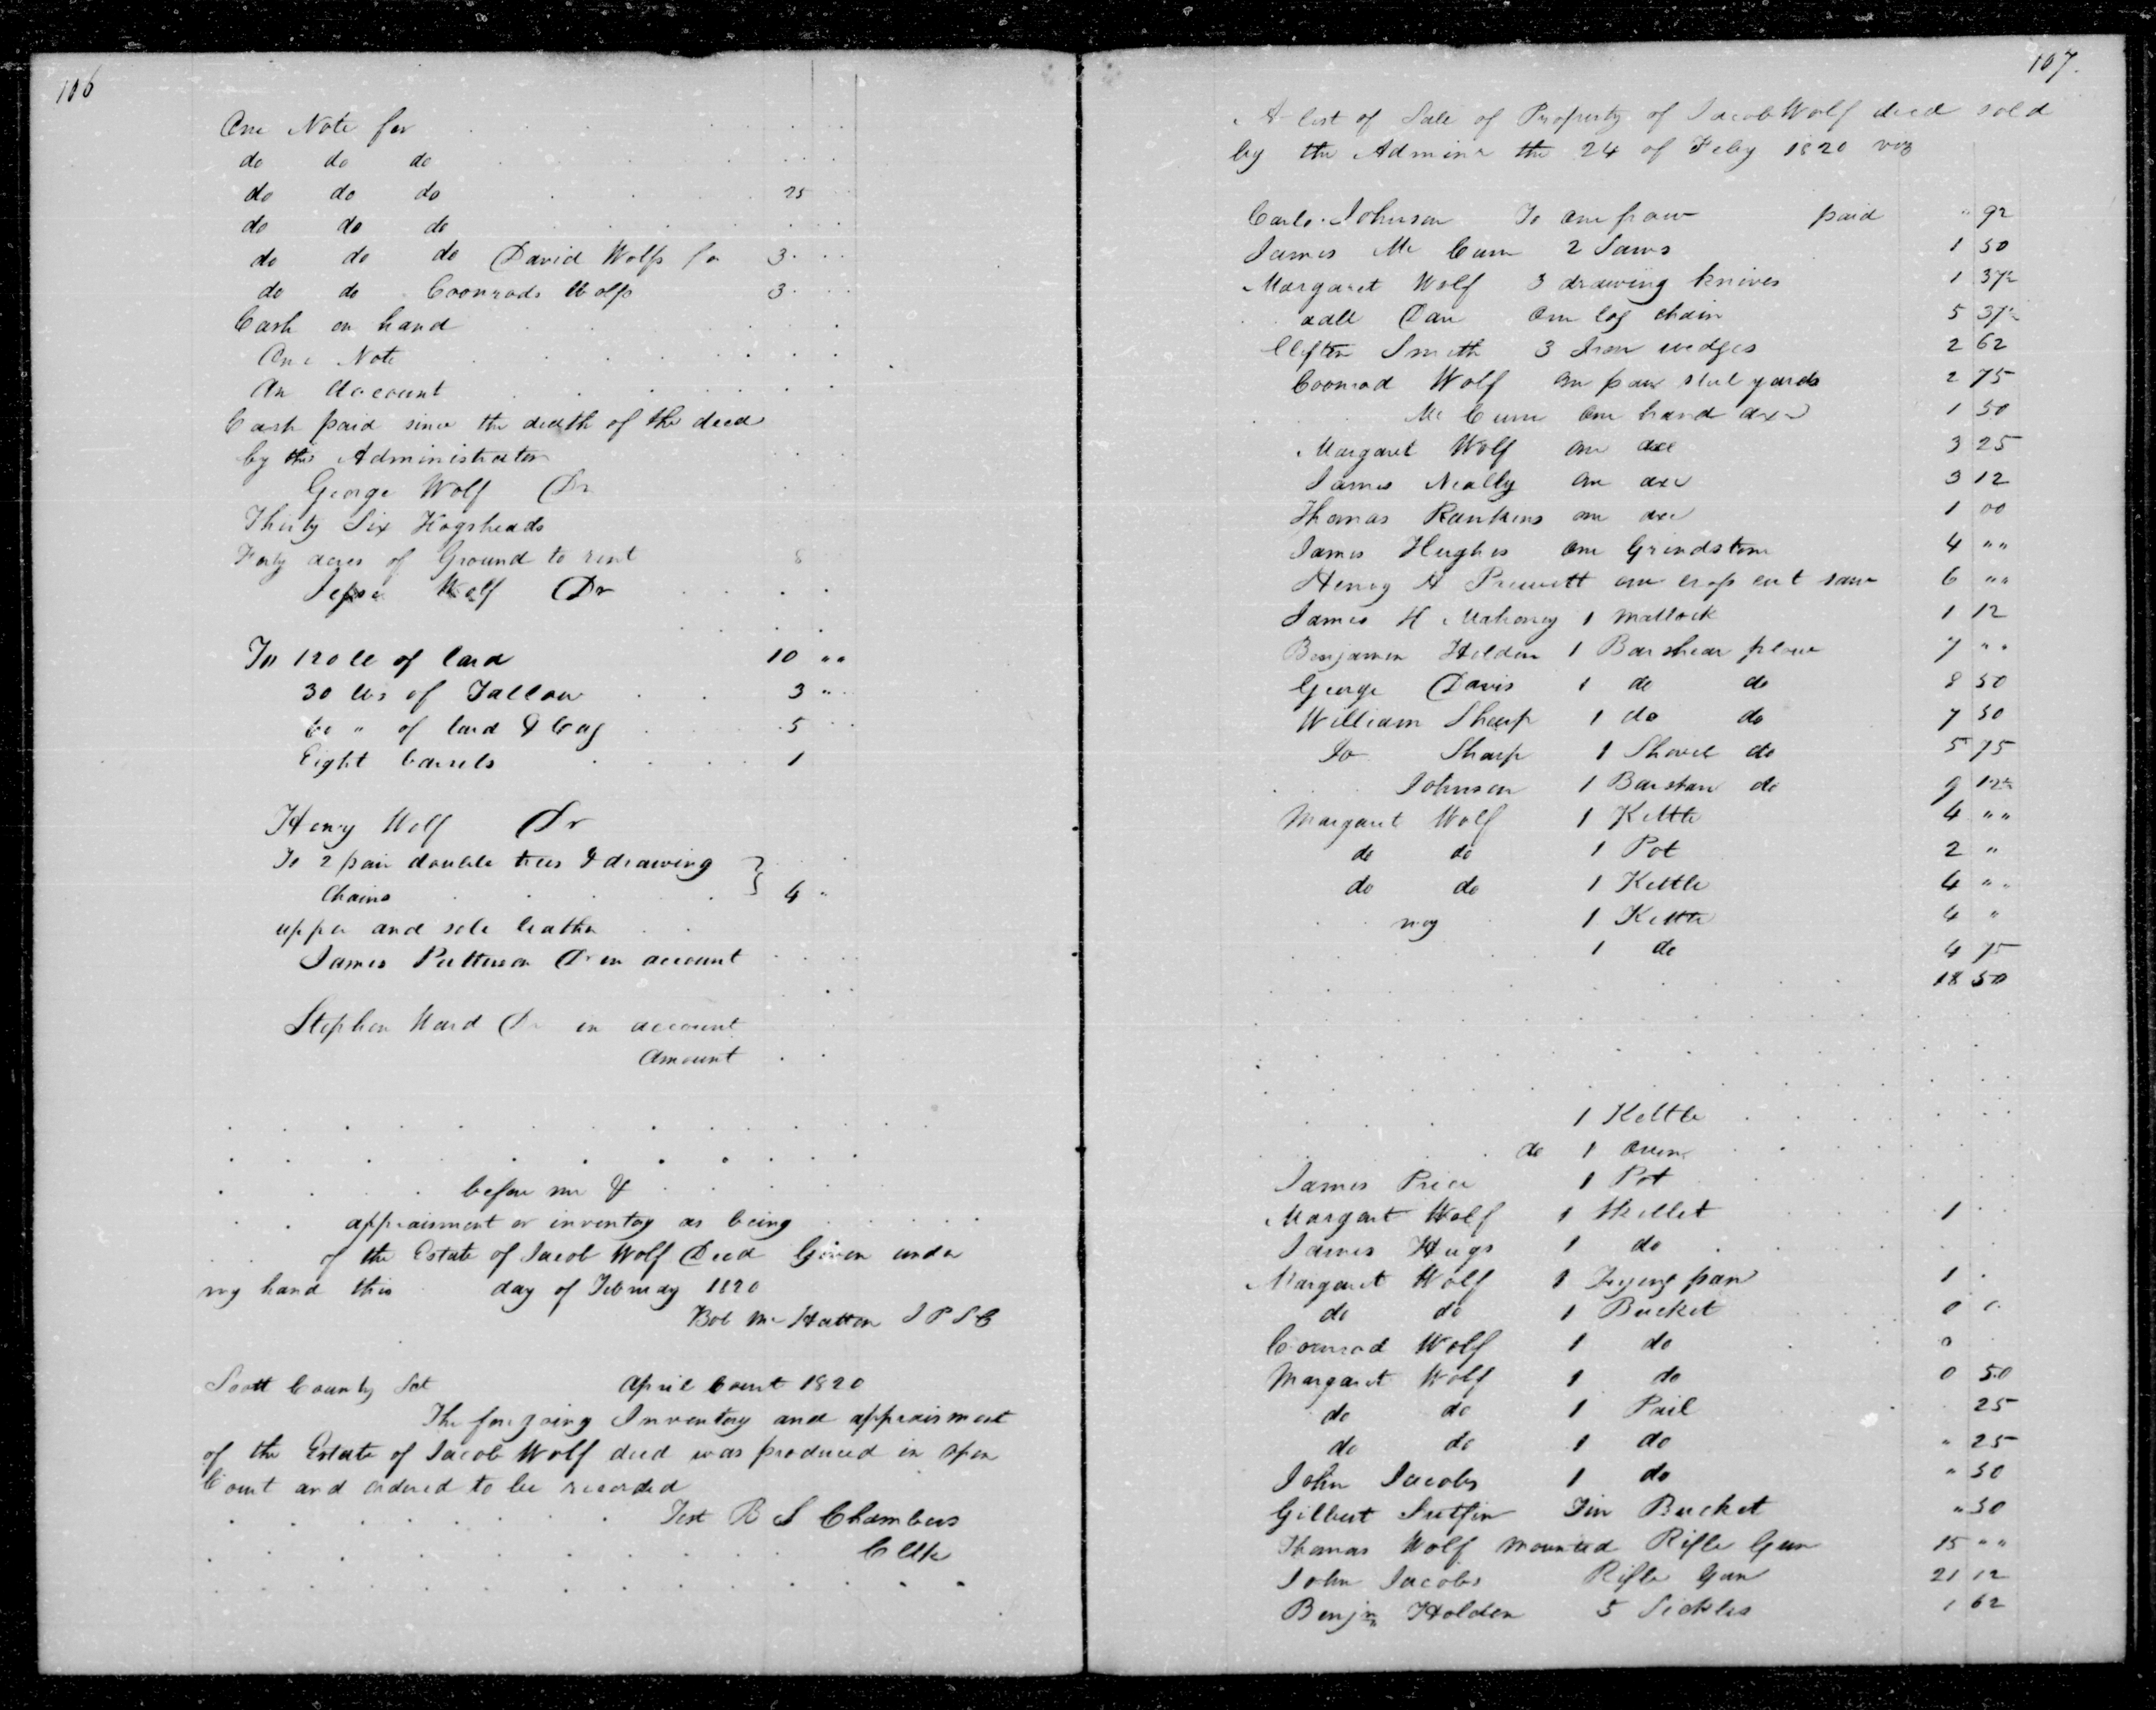 106
One Note for
do do do
do do do 25
do do do
do do do David Wolfs for 3
do do Coonrads Wolfs 3
Cash on hand
One Note
An Account
Cash paid since the death of the decd
by the Administrator
George Wolf Dr
Thirty Six Hogsheads
Forty acres of Ground to rent 8
Wolf Dr
To 120 lb of lard 10 "
30 lbs of Tallow 3 "
" of lard & Cag 5
Eight barrels 1
Henry Wolf Dr
To 2 pair double trees & drawing
Chains 4 "
upper and sole leather
James Patterson Dr in account
Stephen Ward Dr in account
Amount
before me &
appraisment or inventory as being
of the Estate of Jacob Wolf Decd Given under
my hand this day of February 1820
Rob McHatton J P S C
Scott County Sct April Court 1820
The foregoing Inventory and appraisment
of the Estate of Jacob Wolf decd was produced in open
Court and ordered to be recorded
Test B S Chambers
Clk
107.
A list of Sale of Property of Jacob Wolf decd sold
by the Adminr the 24 of Feby 1820 viz
Johnson To one paid " 92
James Mc 2 Saws 1 50
Margaret Wolf 3 drawing knives 1 37½
One log chain 5 37½
Clifton Smith 3 Iron wedges 2 62
Coonrod Wolf one pair steel yards 2 75
Mc one hand axe 1 50
Margaret Wolf one axe 3 25
James Neally one axe 3 12
Thomas Rankins one axe 1 00
James Hughes one Grindstone 4 ""
Henry A Prewitt one cross cut saw 6 ""
James H Mahoney 1 Mattock 1 12
Benjamin Holden 1 Barshear plow 7 ""
George Davis 1 do do 8 50
William Sharp 1 do do 7 50
Jo Sharp 1 Shovel do 5 75
Johnson 1 Barshare do 9 12½
Margaret Wolf 1 Kettle 4 ""
do do 1 Pot 2 "
do do 1 Kettle 4 ""
1 Kettle 4 "
1 do 4 75
18 50
1 Kettle
do 1 Oven
James Price 1 Pot
Margaret Wolf 1 Skillet 1
James Hugs 1 do
Margaret Wolf 1 Frying pan 1
do do 1 Bucket 0
Coonrod Wolf 1 do 0
Margaret Wolf 1 do 0 50
do do 1 Pail 25
do do 1 do " 25
John Jacobs 1 do " 50
Gilbert Sutfin Tin Bucket " 50
Thomas Wolf Mounted Rifle Gun 15 ""
John Jacobs Rifle Gun 21 12
Benjn Holden 5 Sickles 1 62